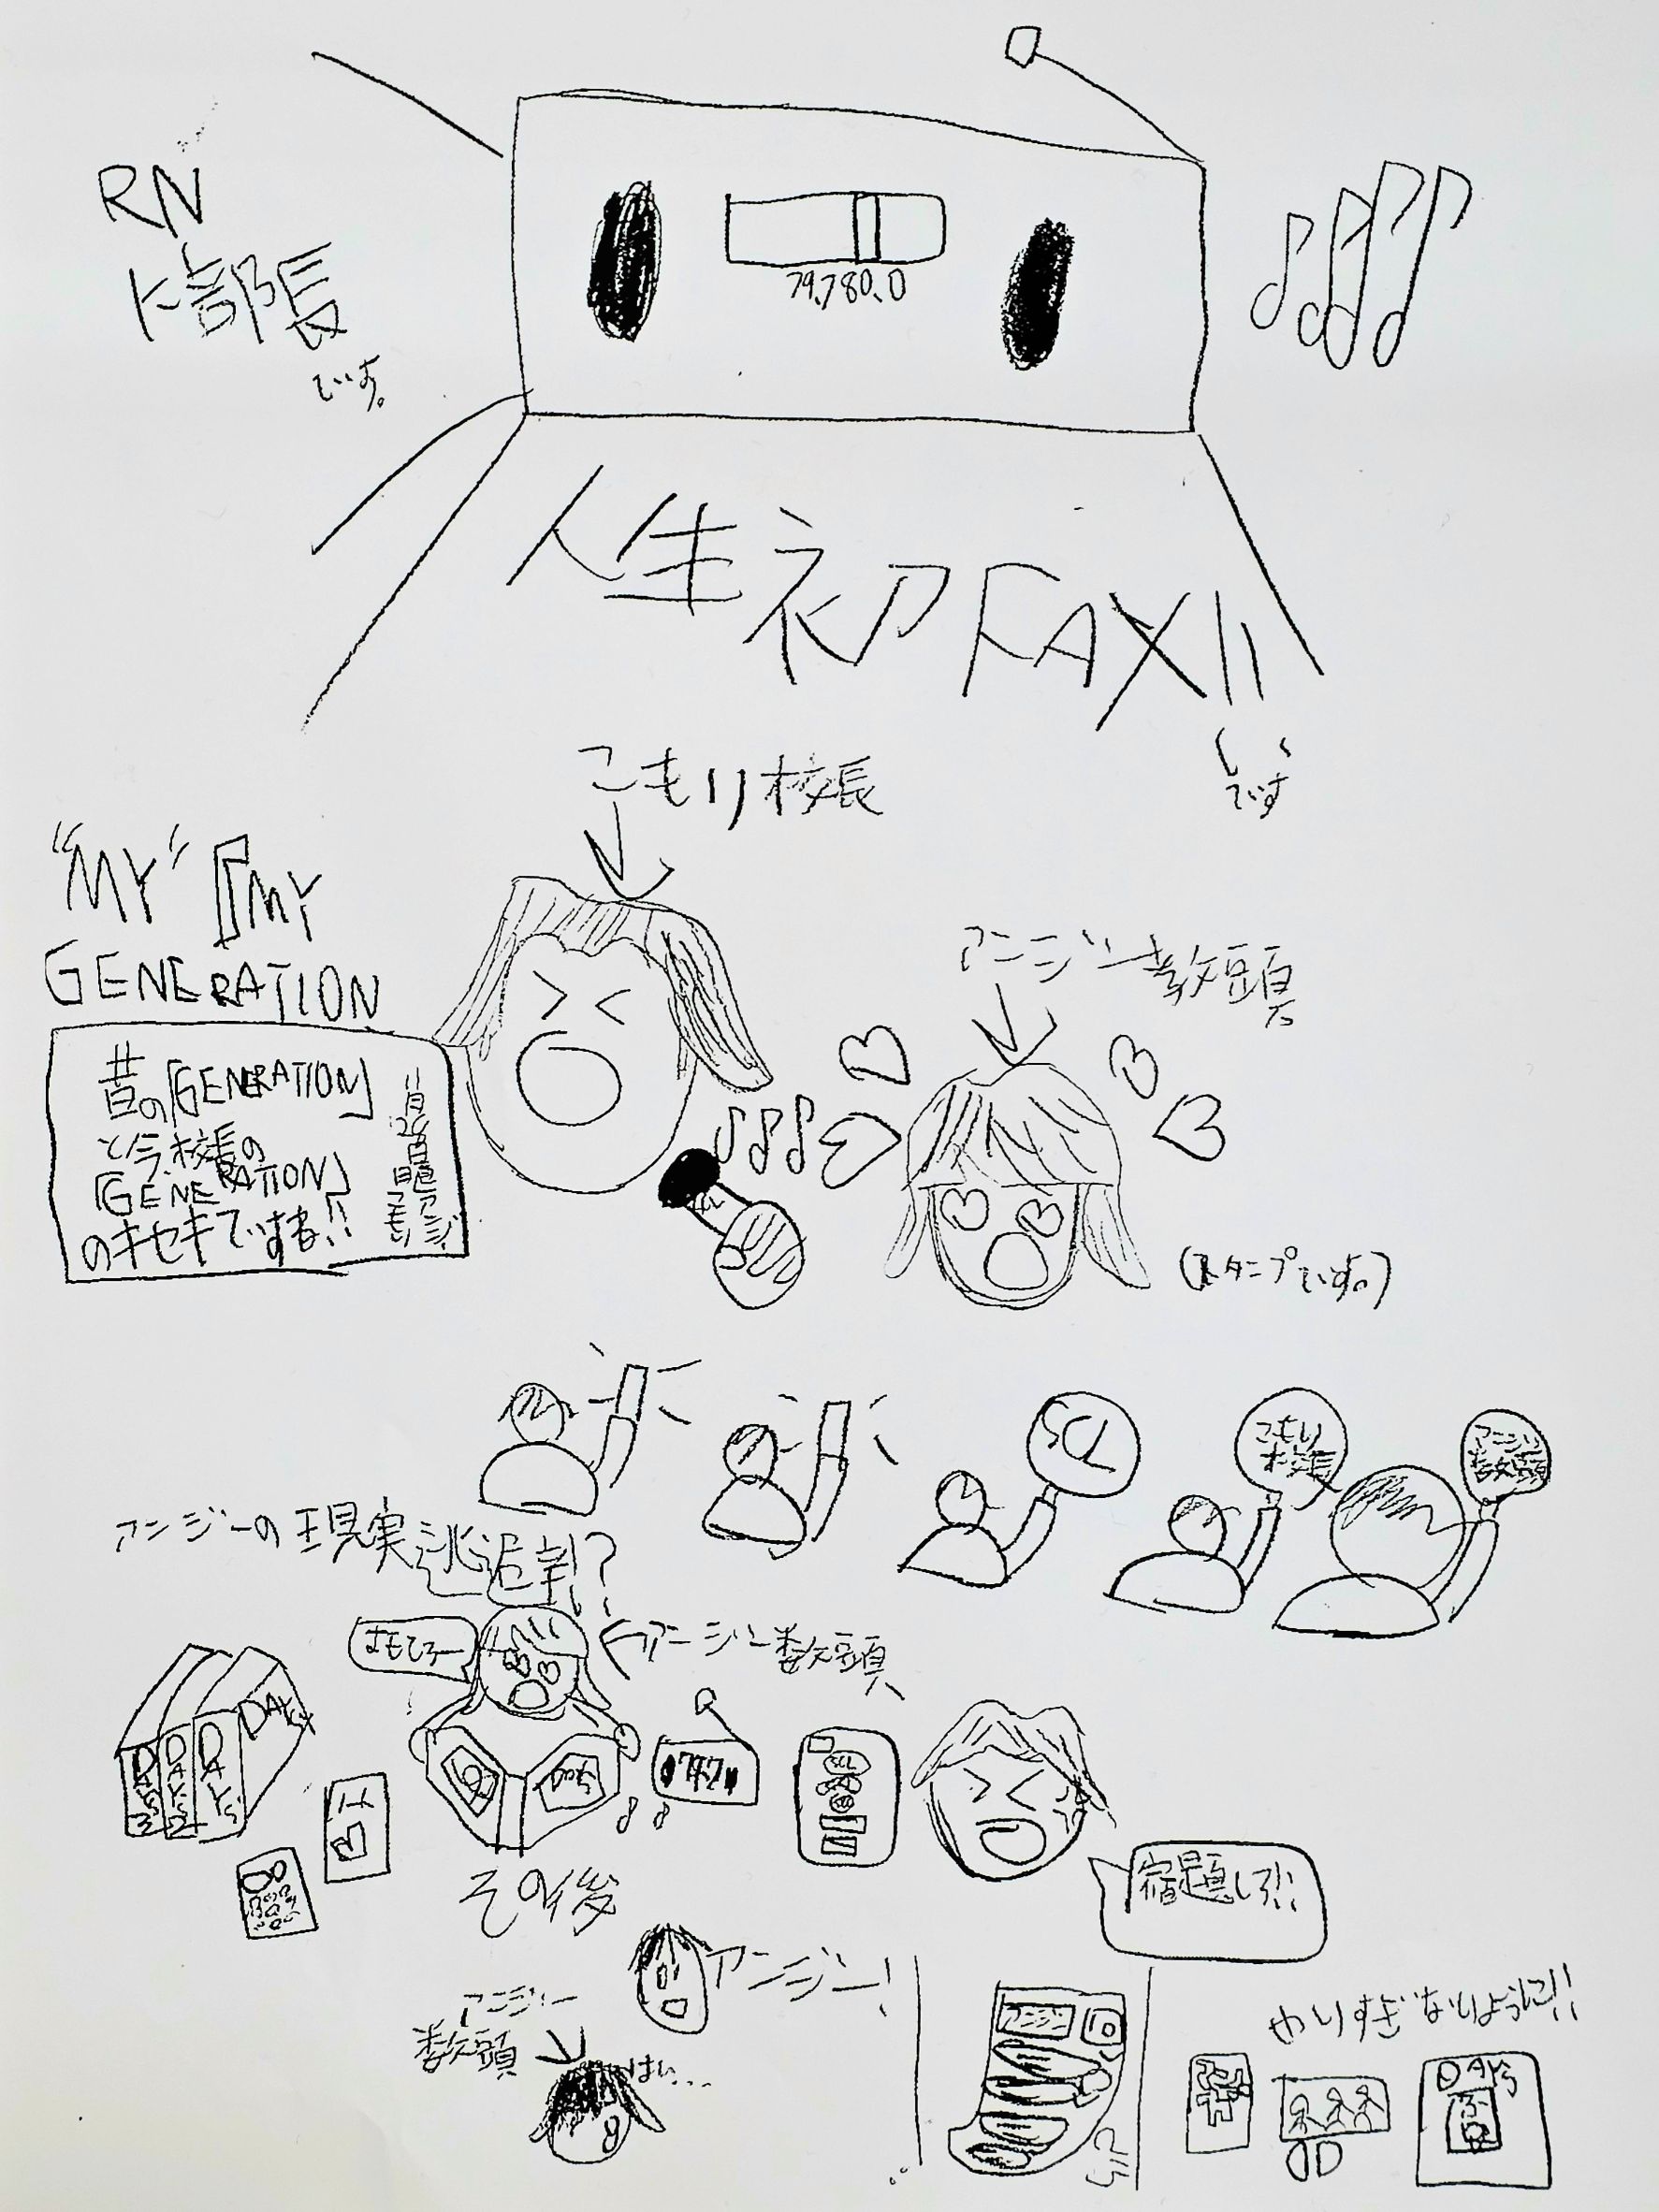 RN
ト部長
です。
79.7 80.0
人生初FAX!!
(です)
こもり校長
"MY"『MY
GENERATION
昔の「GENERATION」
と今、校長の
「GENERATION」
のキセキですね!!
アンジー教頭
(スタンプです。)
SCL
こもり
校長
アンジー
教頭
アンジーの現実逃避!?
おもしろー
アンジー教頭
DAYS
DAYS
DAYS2
DAYS3
宿題しろ!!
その後
アンジー!
アンジー
教頭
はい...
アンジー
10
やりすぎないように!!
DAYS